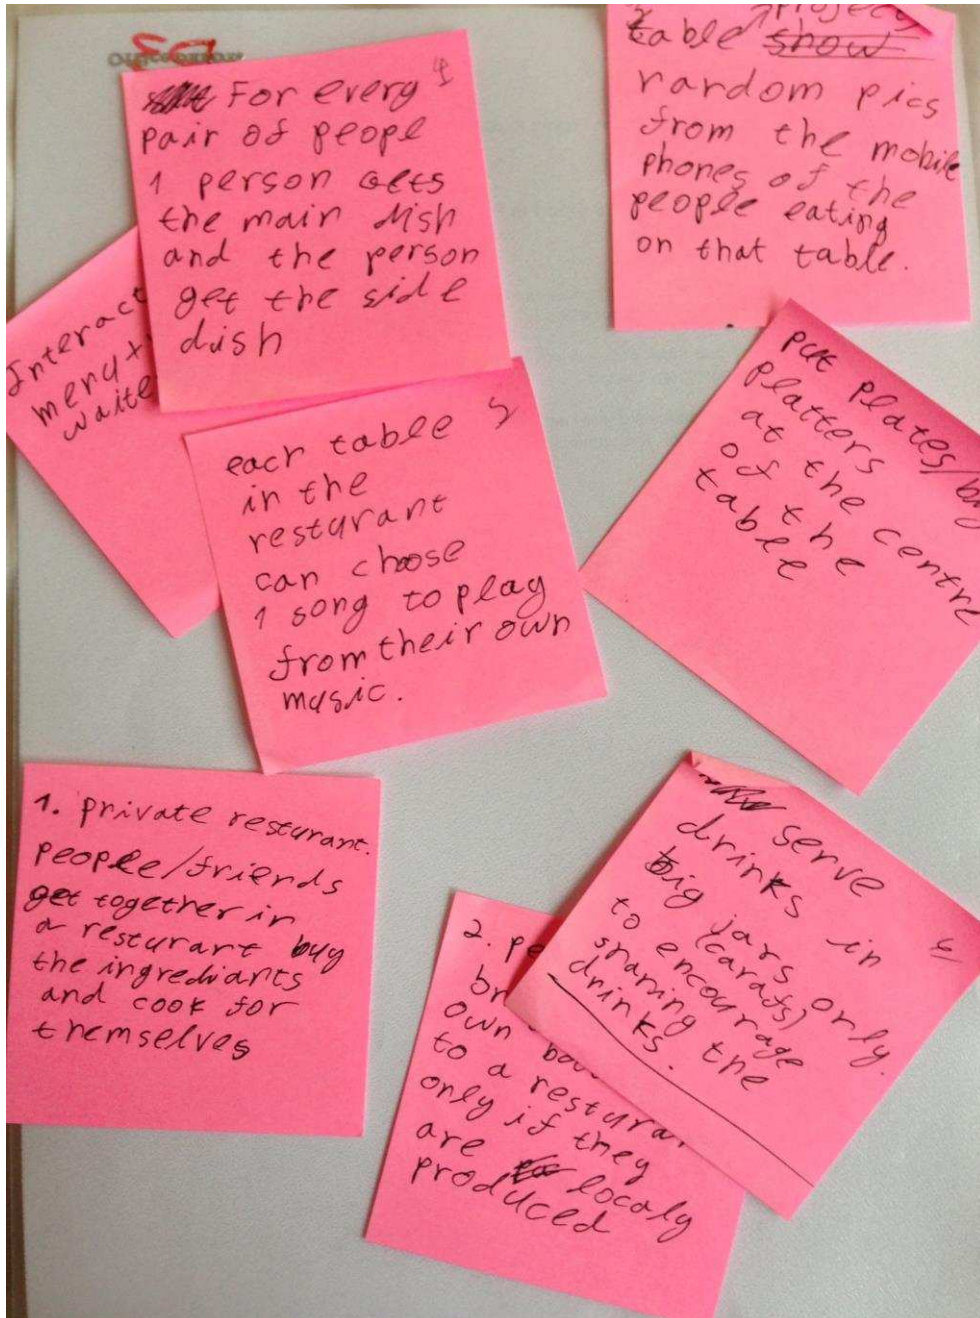 For every
pair of peopl
1 person gets
the main dish
and the person
get the side
dish
table project
show
random pics
from the mobile
phones of the
people eating
on that table.
Interact
menu
waite
each table
in the
resturant
can choose
1 song to play
from their own
music.
put plates/
platters
at the centre
of the
table
1. private resturant.
people/friends
get together in
a resturant buy
the ingrediants
and cook for
themselves
serve
drinks in
big jars only.
(carafs)
to encourage
sharing the
drinks.
2. pe
br
own
to a restura
only if they
are localy
produced